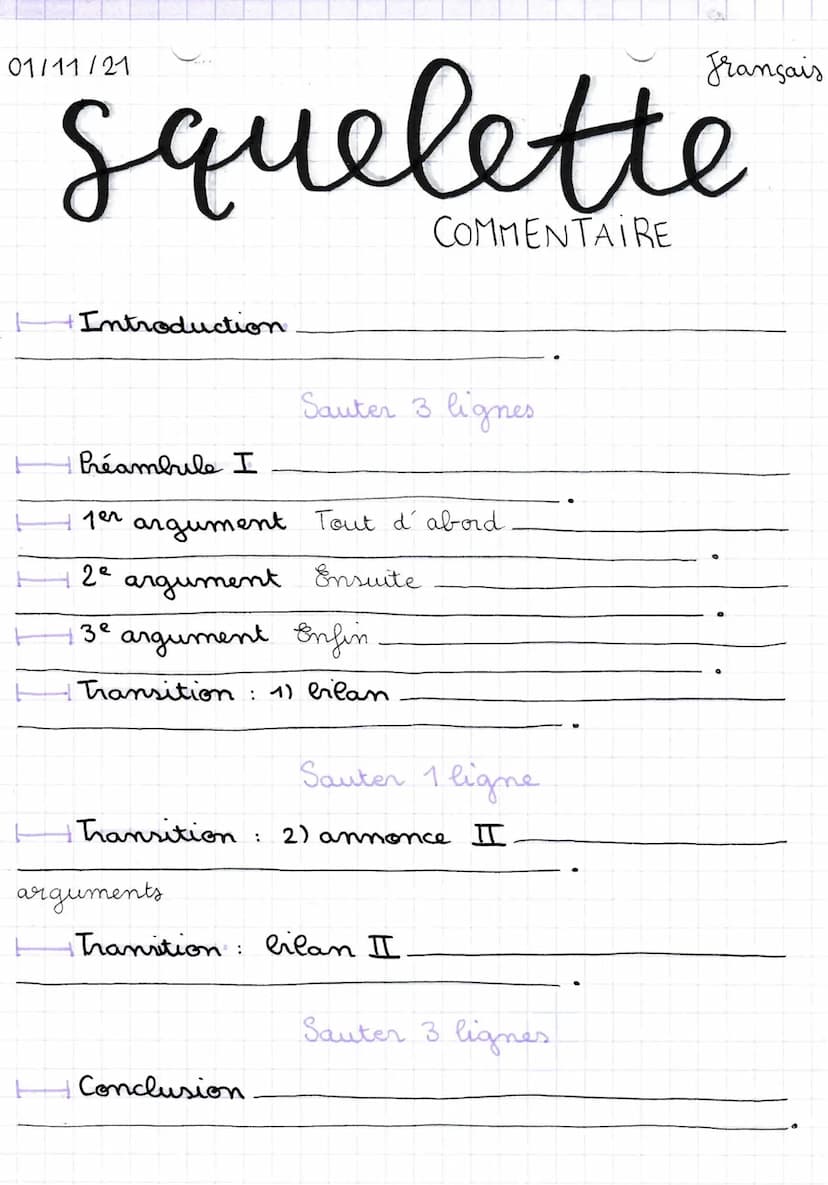 01/11/21
Français
squelette
COMMENTAIRE
Introduction
Sauter 3 lignes
Préambule I
1er argument Tout d'abord
2e argument Ensuite
3e argument Enfin
Transition : 1) bilan
Sauter 1 ligne
Transition : 2) annonce II
arguments
Transition : bilan II
Sauter 3 lignes
Conclusion